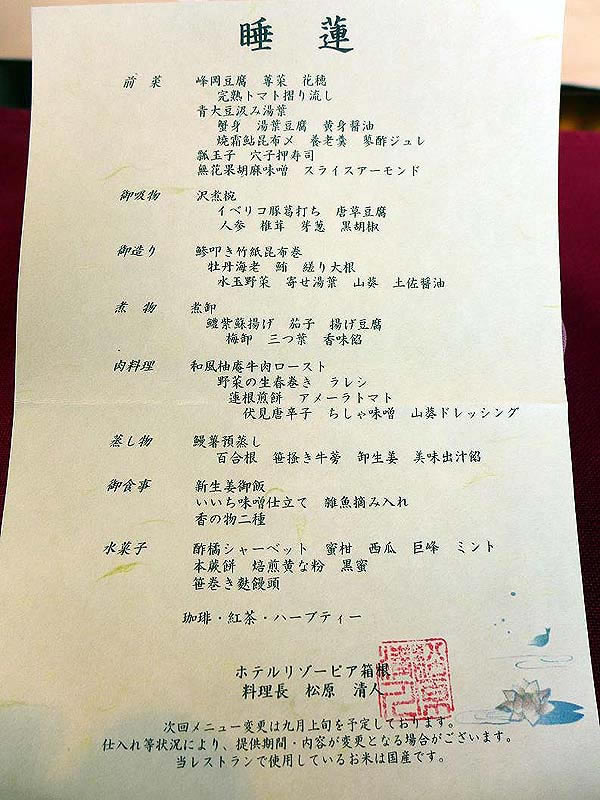 睡蓮
前菜 峰岡豆腐 蓴菜 花穂
完熟トマト摺り流し
青大豆汲み湯葉
蟹身 湯葉豆腐 黄身醤油
焼霜鮎昆布〆 養老羹 蓼酢ジュレ
瓢玉子 穴子押寿司
無花果胡麻味噌 スライスアーモンド
御吸物 沢煮椀
イベリコ豚葛打ち 唐草豆腐
人参 椎茸 芽葱 黒胡椒
御造り 鯵叩き竹紙昆布巻
牡丹海老 鮪 縒り大根
水玉野菜 寄せ湯葉 山葵 土佐醤油
煮物 煮卸
鱧紫蘇揚げ 茄子 揚げ豆腐
梅卸 三つ葉 香味餡
肉料理 和風柚庵牛肉ロースト
野菜の生春巻き ラレシ
蓮根煎餅 アメーラトマト
伏見唐辛子 ちしゃ味噌 山葵ドレッシング
蒸し物 鰻薯預蒸し
百合根 笹掻き牛蒡 卸生姜 美味出汁餡
御食事 新生姜御飯
いいち味噌仕立て 雑魚摘み入れ
香の物二種
水菓子 酢橘シャーベット 蜜柑 西瓜 巨峰 ミント
本蕨餅 焙煎黄な粉 黒蜜
笹巻き麩饅頭
珈琲・紅茶・ハーブティー
ホテルリゾーピア箱根
料理長 松原 清人
次回メニュー変更は九月上旬を予定しております。
仕入れ等状況により、提供期間・内容が変更となる場合がございます。
当レストランで使用しているお米は国産です。